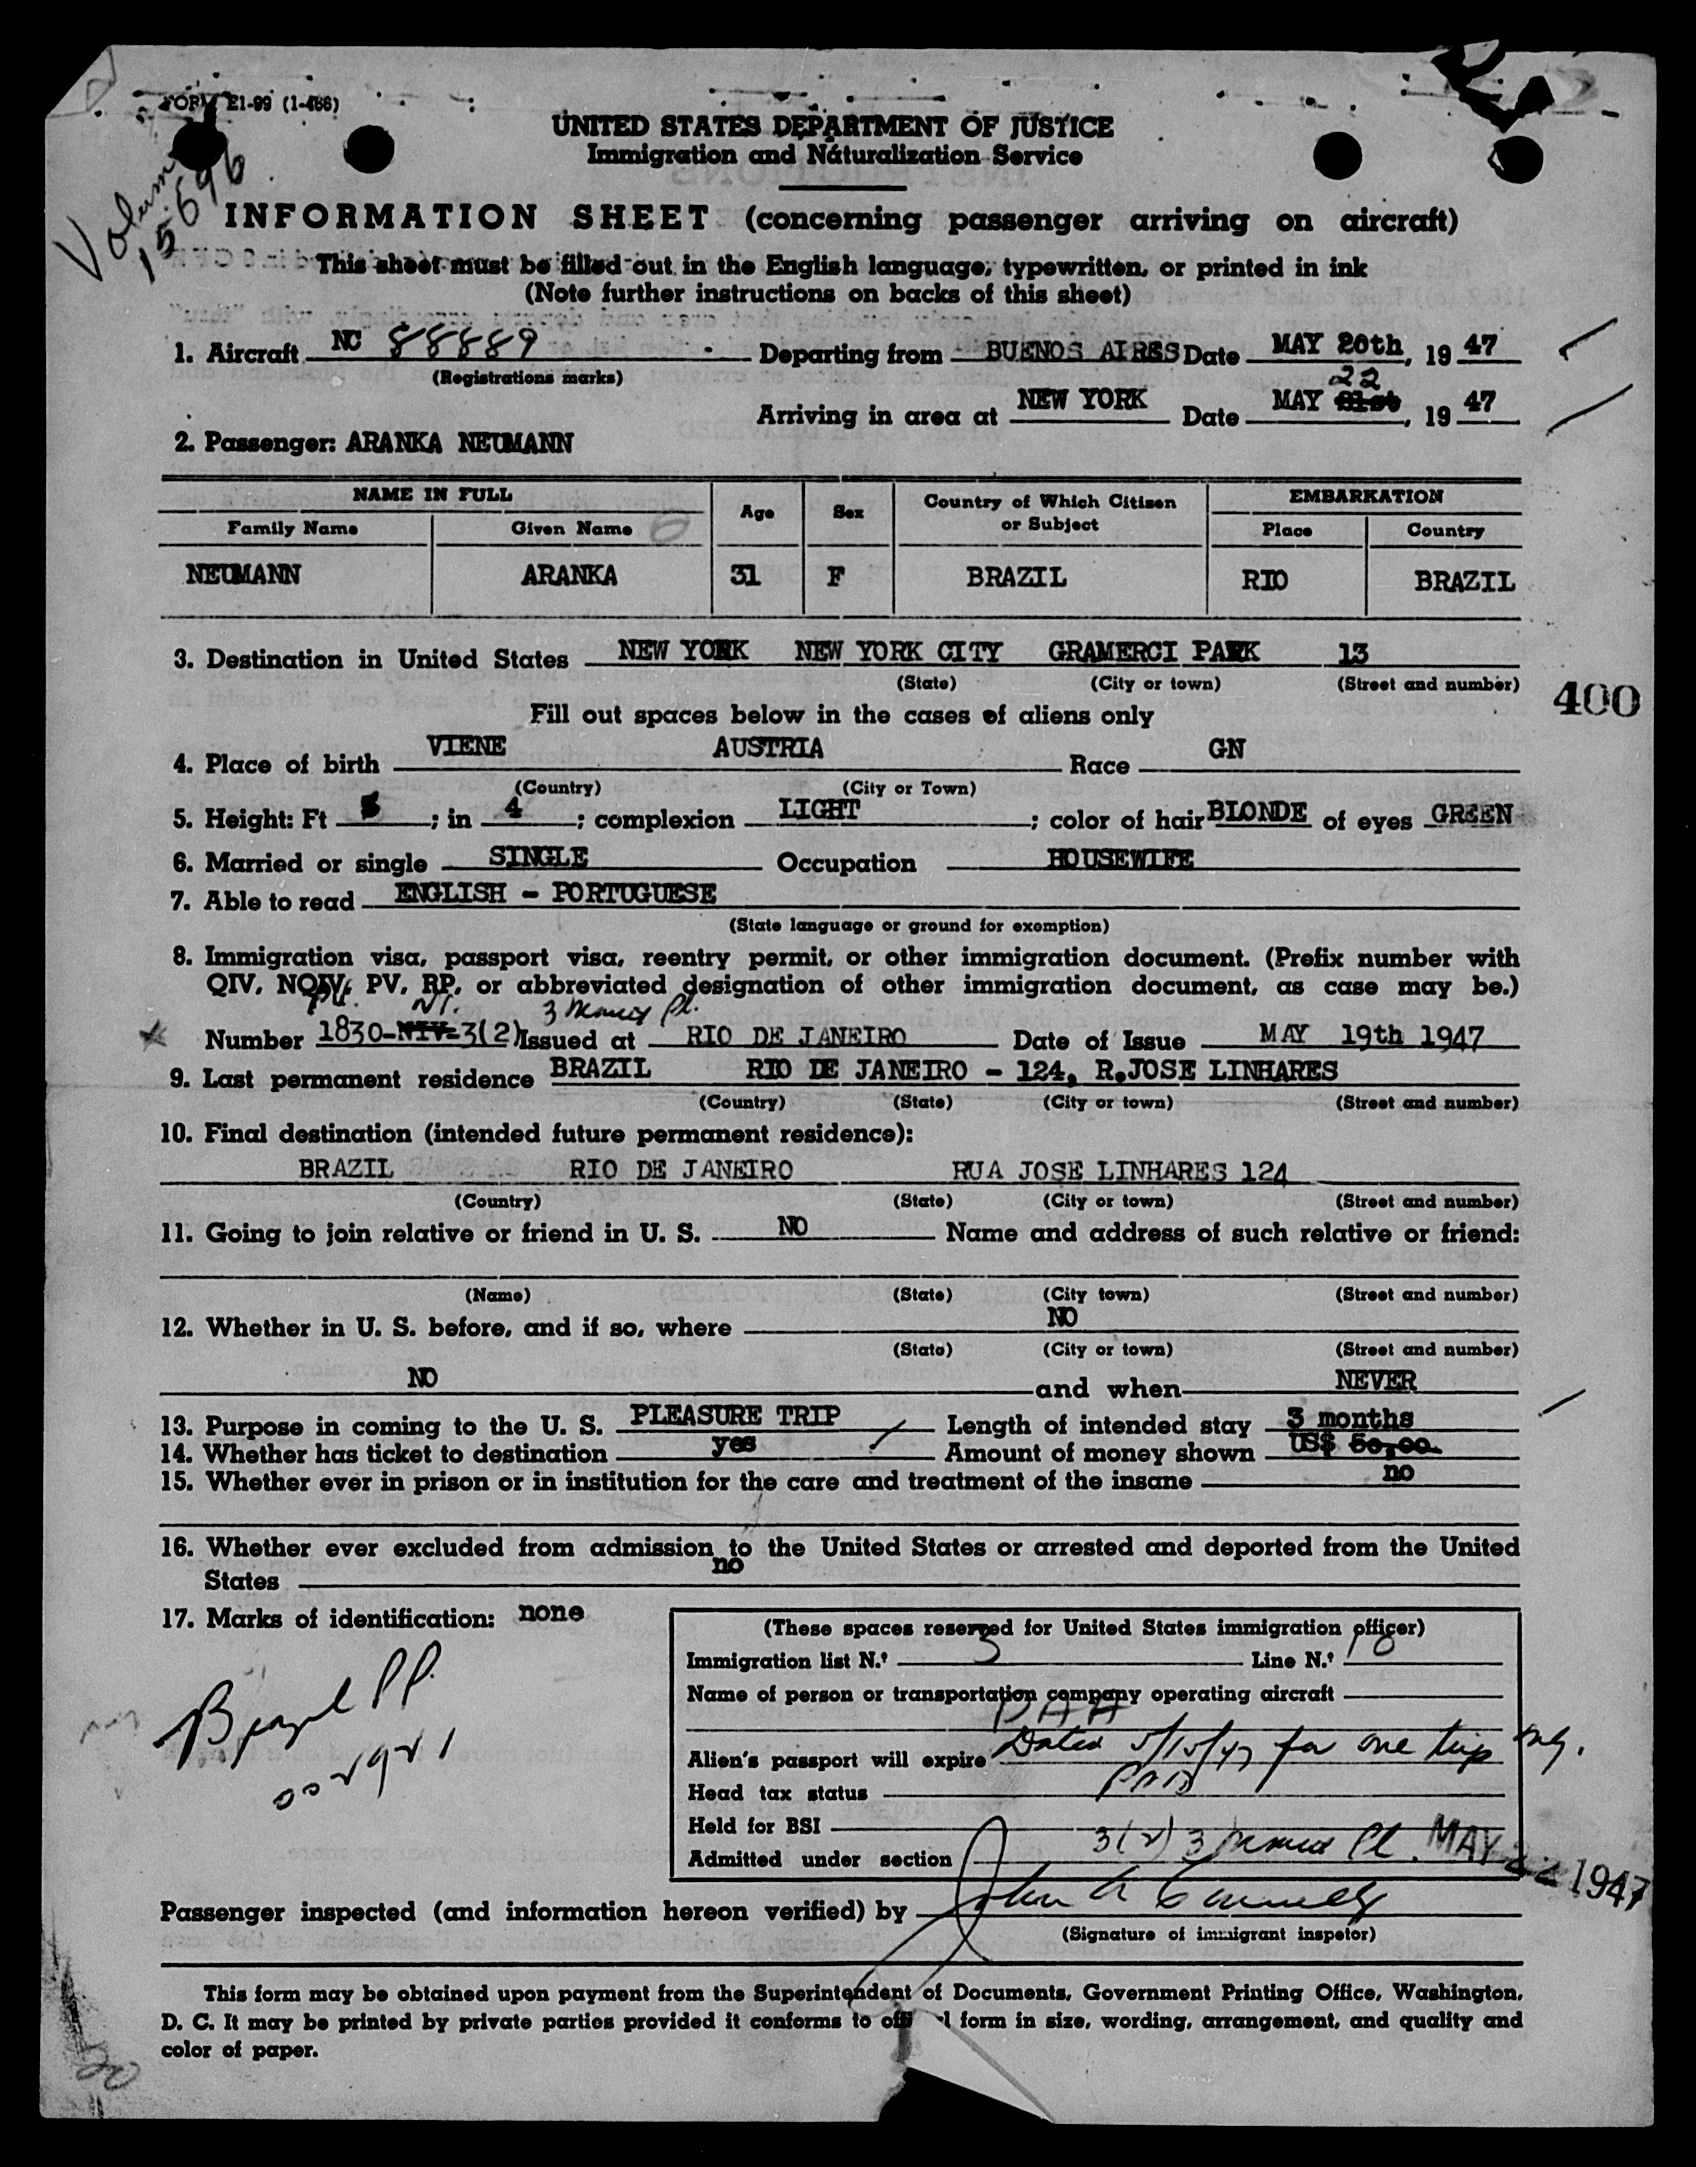 FORM E1-99 (1-466)
UNITED STATES DEPARTMENT OF JUSTICE
Immigration and Naturalization Service
Volum
15696
INFORMATION SHEET (concerning passenger arriving on aircraft)
This sheet must be filled out in the English language, typewritten, or printed in ink
(Note further instructions on backs of this sheet)
1. Aircraft NC 88889 Departing from BUENOS AIRES Date MAY 20th, 19 47
(Registrations marks)
22
Arriving in area at NEW YORK Date MAY 21st, 19 47
2. Passenger: ARANKA NEUMANN
NAME IN FULL Age Sex Country of Which Citizen or Subject EMBARKATION
Family Name Given Name Place Country
NEUMANN ARANKA 31 F BRAZIL RIO BRAZIL
3. Destination in United States NEW YORK NEW YORK CITY GRAMERCI PARK 13
(State) (City or town) (Street and number)
400
Fill out spaces below in the cases of aliens only
4. Place of birth VIENE AUSTRIA Race GN
(Country) (City or Town)
5. Height: Ft 5; in 4; complexion LIGHT; color of hair BLONDE of eyes GREEN
6. Married or single SINGLE Occupation HOUSEWIFE
7. Able to read ENGLISH - PORTUGUESE
(State language or ground for exemption)
8. Immigration visa, passport visa, reentry permit, or other immigration document. (Prefix number with
QIV, NQIV, PV, RP, or abbreviated designation of other immigration document, as case may be.)
Number 1830-NIV-3(2) Issued at RIO DE JANEIRO Date of Issue MAY 19th 1947
9. Last permanent residence BRAZIL RIO DE JANEIRO - 124, R.JOSE LINHARES
(Country) (State) (City or town) (Street and number)
10. Final destination (intended future permanent residence):
BRAZIL RIO DE JANEIRO RUA JOSE LINHARES 124
(Country) (State) (City or town) (Street and number)
11. Going to join relative or friend in U. S. NO Name and address of such relative or friend:
(Name) (State) (City town) (Street and number)
12. Whether in U. S. before, and if so, where NO
(State) (City or town) (Street and number)
NO and when NEVER
13. Purpose in coming to the U. S. PLEASURE TRIP Length of intended stay 3 months
14. Whether has ticket to destination yes Amount of money shown US$ 60,00.
15. Whether ever in prison or in institution for the care and treatment of the insane no
16. Whether ever excluded from admission to the United States or arrested and deported from the United
States no
17. Marks of identification: none
Brazil PP.
(These spaces reserved for United States immigration officer)
Immigration list N.º 3 Line N.º 18
Name of person or transportation company operating aircraft
PAA
Alien's passport will expire Dated 5/15/47 for one trip only.
Head tax status PAID
Held for BSI
Admitted under section 3(2) 3 Pl. MAY 22 1947
Passenger inspected (and information hereon verified) by John
(Signature of immigrant inspetor)
This form may be obtained upon payment from the Superintendent of Documents, Government Printing Office, Washington,
D. C. It may be printed by private parties provided it conforms to form in size, wording, arrangement, and quality and
color of paper.